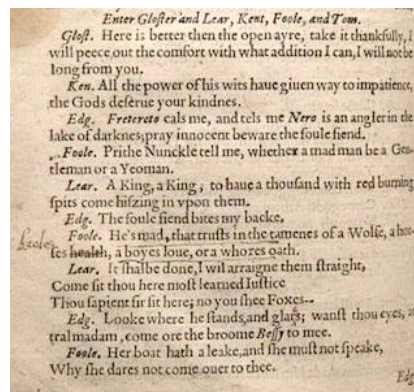 Enter Gloster and Lear, Kent, Foole, and Tom.
Glost. Here is better then the open ayre, take it thankfully, I
will peece out the comfort with what addition I can, I will not be
long from you.
Ken. All the power of his wits haue giuen way to impatience,
the Gods deserue your kindnes.
Edg. Fretereto cals me, and tels me Nero is an angler in the
lake of darknes, pray innocent beware the foule fiend.
Foole. Prithe Nunckle tell me, whether a mad man be a Gen-
tleman or a Yeoman.
Lear. A King, a King; to haue a thousand with red burning
spits come hiszing in vpon them.
Edg. The foule fiend bites my backe,
Foole. He's mad, that trusts in the tamenes of a Wolfe, a hor-
heeles ses health, a boyes loue, or a whores oath.
Lear. It shalbe done, I wil arraigne them straight,
Come sit thou here most learned Iustice
Thou sapient sir sit here; no you shee Foxes--
Edg. Looke where he stands, and glars; wanst thou eyes, at
tral madam, come ore the broome Bessy to mee.
Foole. Her boat hath a leake, and she must not speake,
Why she dares not come ouer to thee.
Edg